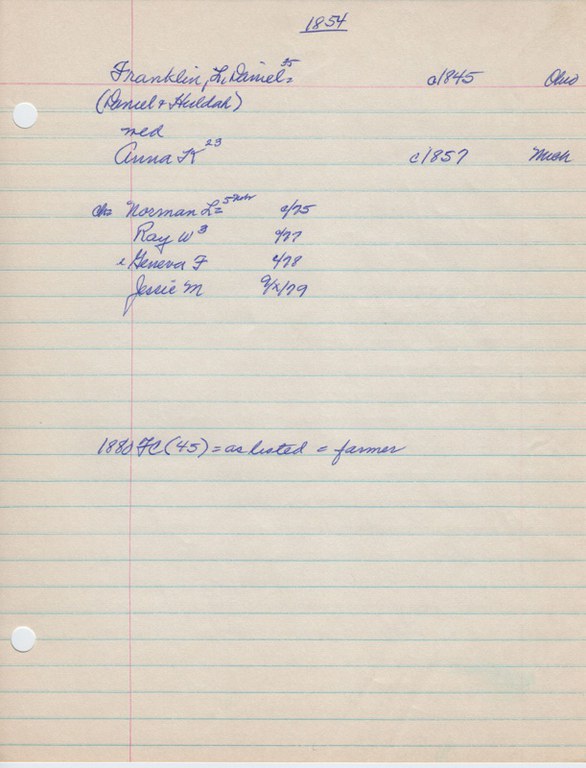 1854
Franklin, L. Daniel = 35 c/1845 Ohio
(Daniel & Huldah)
med
Anna K 23 c/1857 Mich
chs Norman L = 5 c/75
Ray W 3 c/77
Geneva F c/78
Jessie M 9/x/79
1880 FC (45) = as listed = farmer